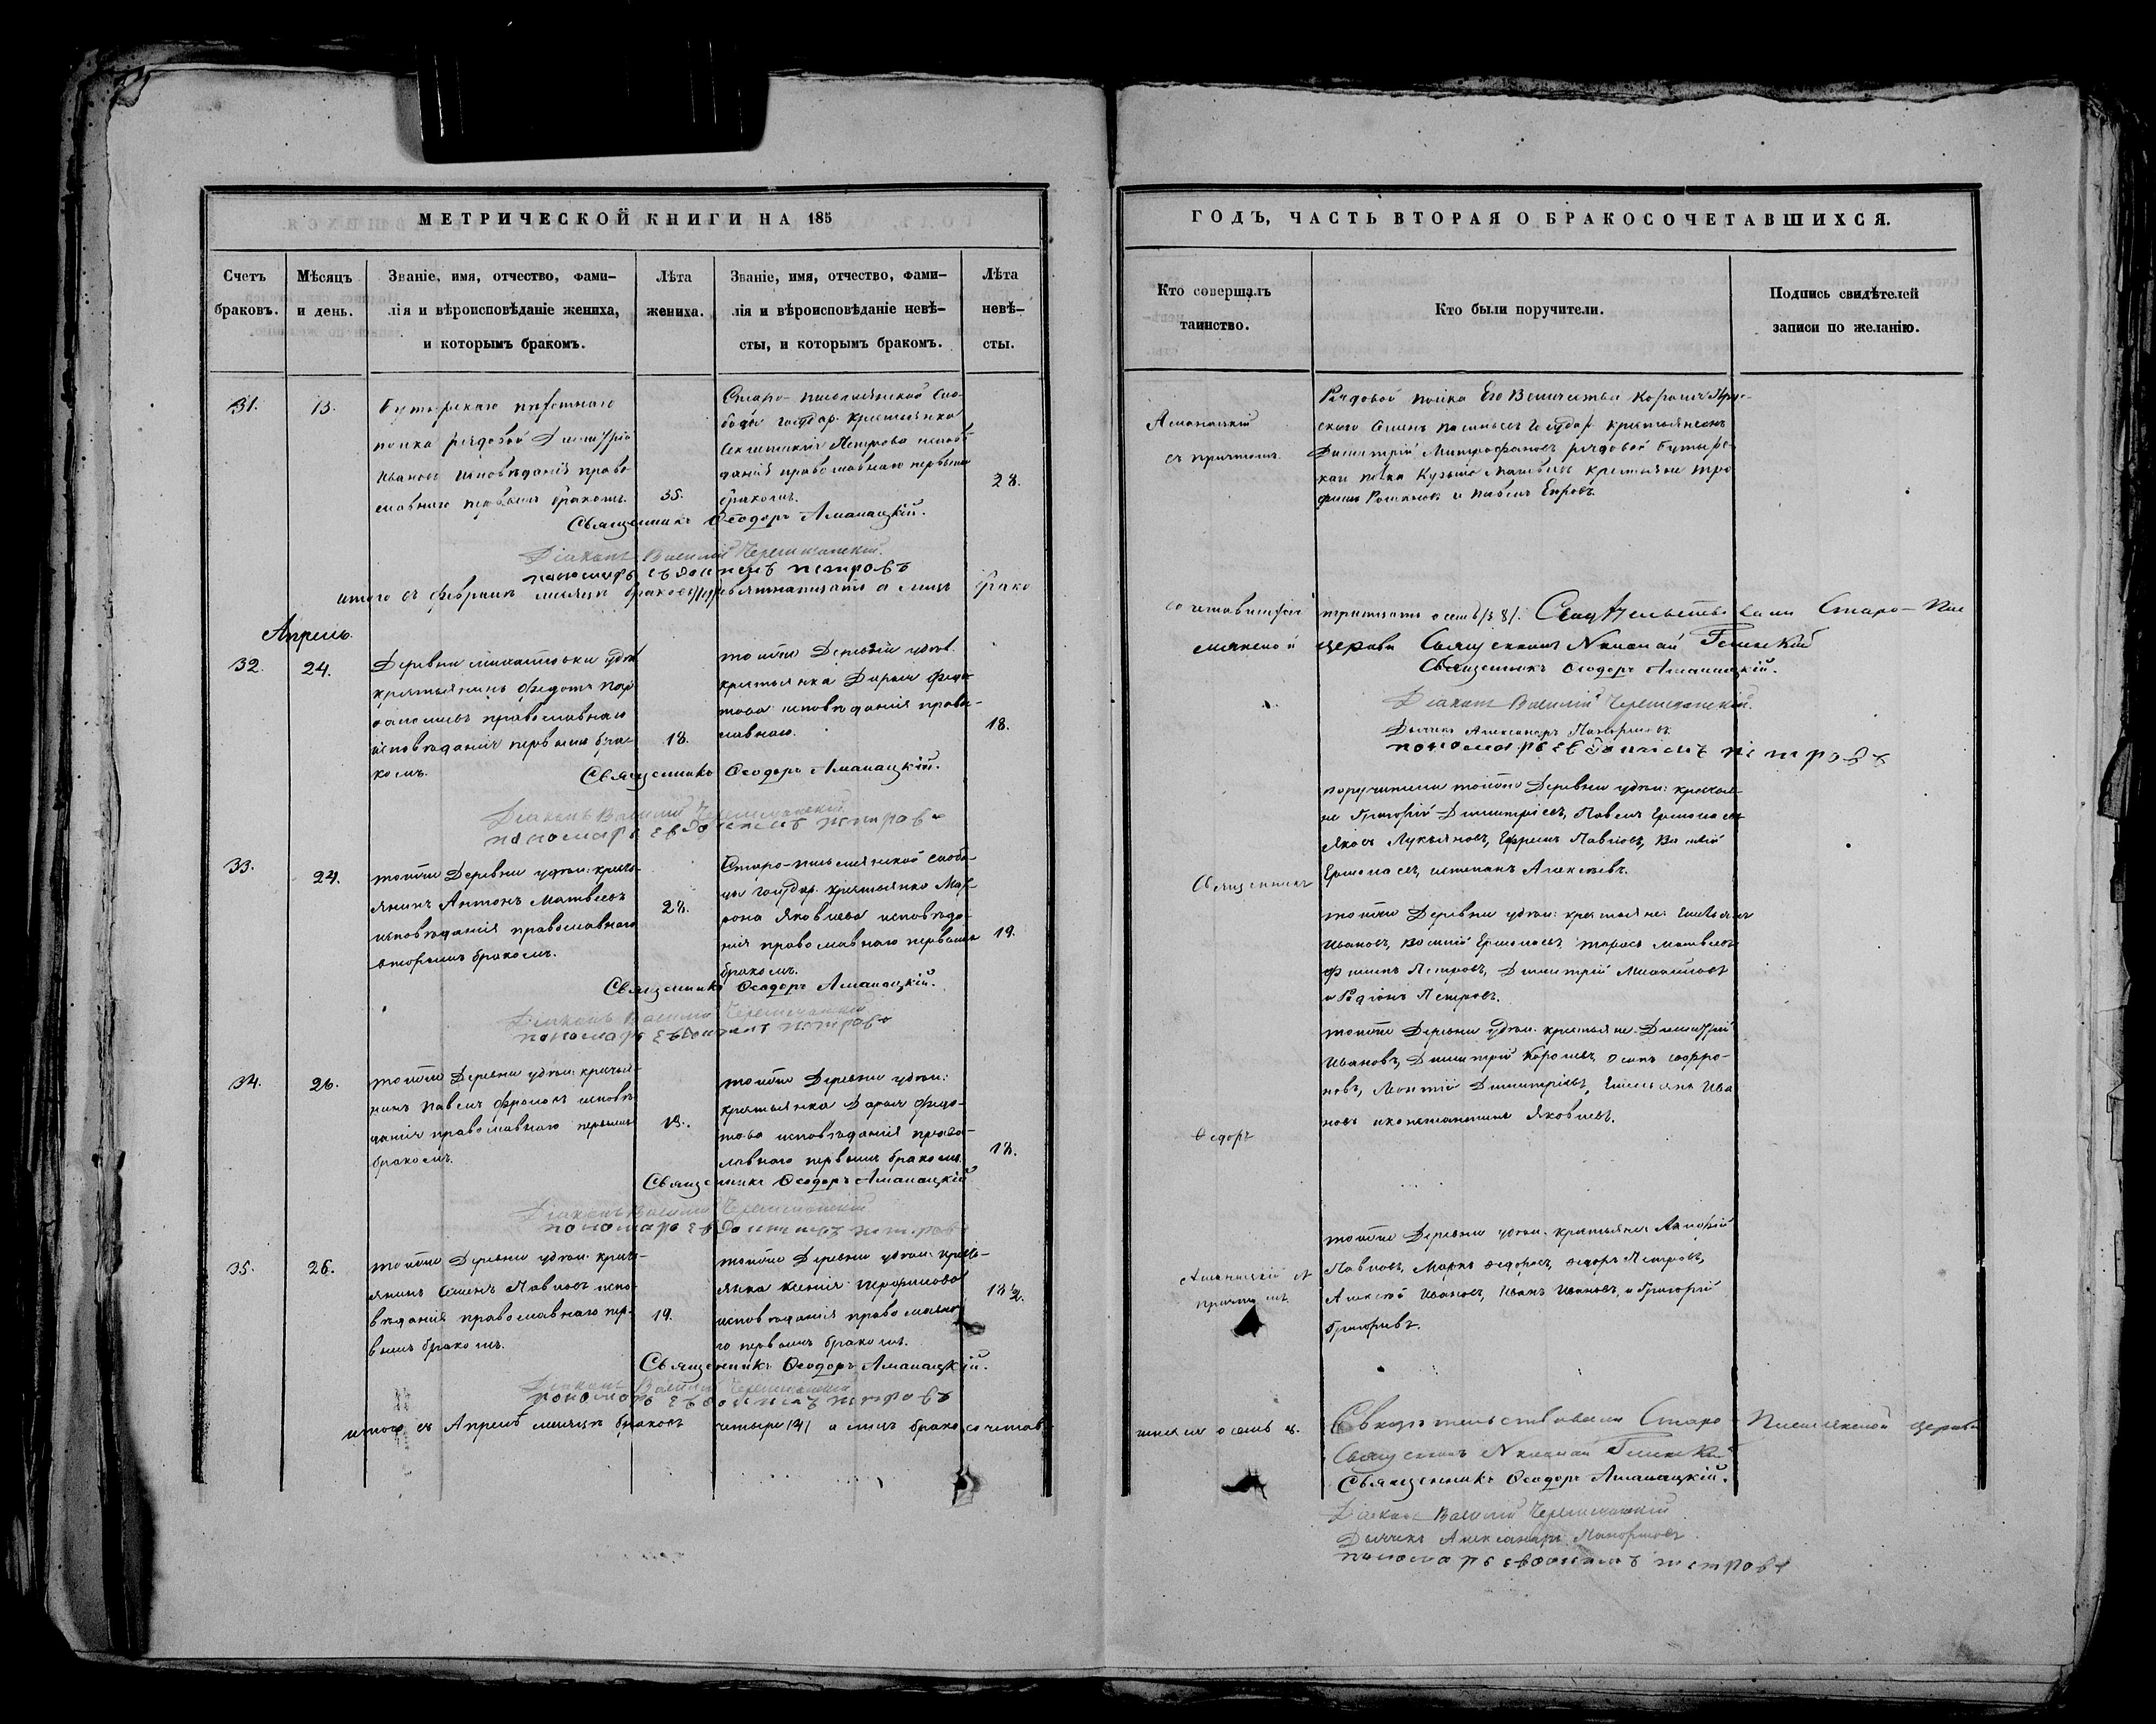 МЕТРИЧЕСКОЙ КНИГИ НА 185
Счетъ браковъ.
Мѣсяцъ и день.
Званіе, имя, отчество, фами-
лія и вѣроисповѣданіе жениха,
и которымъ бракомъ.
Лѣта жениха.
Званіе, имя, отчество, фами-
лія и вѣроисповѣданіе невѣ-
сты, и которымъ бракомъ.
Лѣта невѣ-
сты.
31.
13.
Бутырскаго пѣхотнаго
полка рядовой Димитрій
Ивановъ исповѣданія право
славнаго первымъ бракомъ.
35.
Старо-письмянской сло-
боды государ. крестьянка
Петрова исповѣ
данія православнаго первымъ
бракомъ.
28.
Священникъ Ѳеодоръ Аманацкій.
Діаконъ Василій Черемшанскій.
пономарь Евдокимъ петровъ
итого въ февралѣ месяцѣ браковъ девятнатцать а лицъ брако
Апрель.
32.
24.
Деревни удѣл
крестьянинъ Федотъ
православнаго
исповѣданія первымъ бра-
комъ.
18.
тойже Деревни удѣл.
крестьянка Дарья Федо-
това исповѣданія право-
славнаго.
18.
Священникъ Ѳеодоръ Аманацкій.
Діаконъ Василій Черемшанскій
пономарь Евдокимъ петровъ
33.
24.
тойже Деревни удѣл: кресть-
янинъ Антонъ Матвѣевъ
исповѣданія православнаго
вторымъ бракомъ.
28.
Старо-письмянской слобо-
ды государ. крестьянка Мат-
рона Яковлева исповѣда-
нія православнаго первымъ
бракомъ.
19.
Священникъ Ѳеодоръ Аманацкій.
Діаконъ Василій Черемшанскій
пономарь Евдокимъ петровъ
34.
26.
тойже Деревни удѣл: крестья-
нинъ Павелъ Фроловъ исповѣ
данія православнаго первымъ
бракомъ.
тойже Деревни удѣл:
крестьянка Дарья Федо-
това исповѣданія право-
славнаго первымъ бракомъ.
18.
Священникъ Ѳеодоръ Аманацкій
Діаконъ Василій Черемшанскій
пономарь Евдокимъ петровъ
35.
26.
тойже Деревни удѣл: кресть-
янинъ Семенъ Павловъ испо-
вѣданія православнаго пер-
вымъ бракомъ.
19.
тойже Деревни удѣл: кресть-
янка Ксенія
исповѣданія православна
го первымъ бракомъ.
18½.
Священникъ Ѳеодоръ Аманацкій.
Діаконъ Василій Черемшанскій
пономарь Евдокимъ петровъ
итого въ Апрелѣ месяцѣ браковъ четыре /4/ а лицъ брако сочетав-
ГОДЪ, ЧАСТЬ ВТОРАЯ О БРАКОСОЧЕТАВШИХСЯ.
Кто совершалъ
таинство.
Кто были поручители.
Подпись свидѣтелей
записи по желанію.
Аманацкій
съ причтомъ.
Рядовой полка Его Величества Короля Прус-
скаго Семенъ государ. крестьянинъ
Димитрій Митрофановъ рядовой Бутырс-
каго полка Кузьма Матвѣевъ крестьяне Тро
фимъ Романовъ и Павелъ
сочетавшихся тритцать осемь /38/. Свидѣтельствовали Старо-Пис
мянской церкви Священникъ Николай
Священникъ Ѳеодоръ Аманацкій.
Діаконъ Василій Черемшанскій.
Дьячикъ Александръ
пономарь Евдокимъ петровъ
Священникъ
поручители тойже Деревни удѣл: крестья-
не Григорій Димитріевъ, Павелъ Ермолаевъ
Яковъ Лукьяновъ, Ефремъ Павловъ, Василій
Ермолаевъ, Степанъ Алексѣевъ.
тойже Деревни удѣл: крестьяне: Емельянъ
Ивановъ, Василій Ермолаевъ Тарасъ Матвѣевъ
Филипъ Петровъ, Димитрій Михайловъ
и Родіонъ Петровъ.
Ѳедоръ
тойже Деревни удѣл. крестьяне. Димитрій
Ивановъ, Димитрій Осипъ Софро-
новъ, Леонтій Димитріевъ, Емельянъ Ива
новъ и Константинъ Яковлевъ.
Аманацкій съ
причтомъ.
тойже Деревни удѣл. крестьяне
Павловъ, Марко Ѳедоровъ, Ѳедоръ Петровъ,
Алексѣй Ивановъ, Иванъ Ивановъ, и Григорій
Григорьевъ.
шихся осемь 8. Свидѣтельствовали Старо Писмянской церкви
Священникъ Николай
Священникъ Ѳеодоръ Аманацкій.
Діаконъ Василій Черемшанскій
Дьячикъ Александръ
пономарь Евдокимъ петровъ